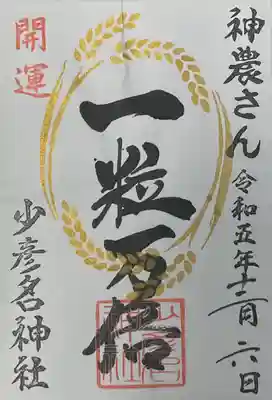 神農さん
令和五年十二月六日
一粒万倍
開運
少彦名神社